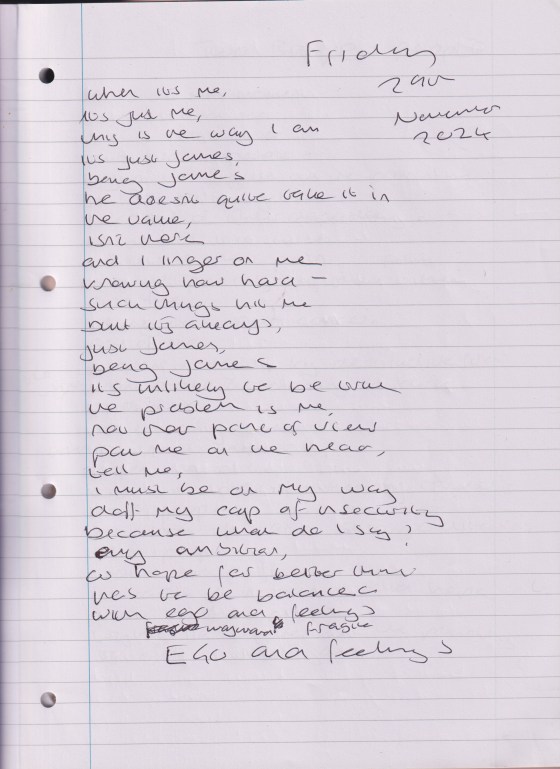 Friday
29th
November
2024
when its me,
its just me,
this is the way I am
its just James,
being James
he doesnt quite take it in
the value,
isnt there
and I linger on me
knowing how hard –
such things hit me
but its always,
just James,
being James
its unlikely to be true
the problem is me,
now your point of view
pat me on the head,
tell me,
I must be on my way
doff my cap of insecurity
because what do I say?
every ambition,
to hope for better time
has to be balanced
with ego and feelings
wayward fragile
EGO and feelings